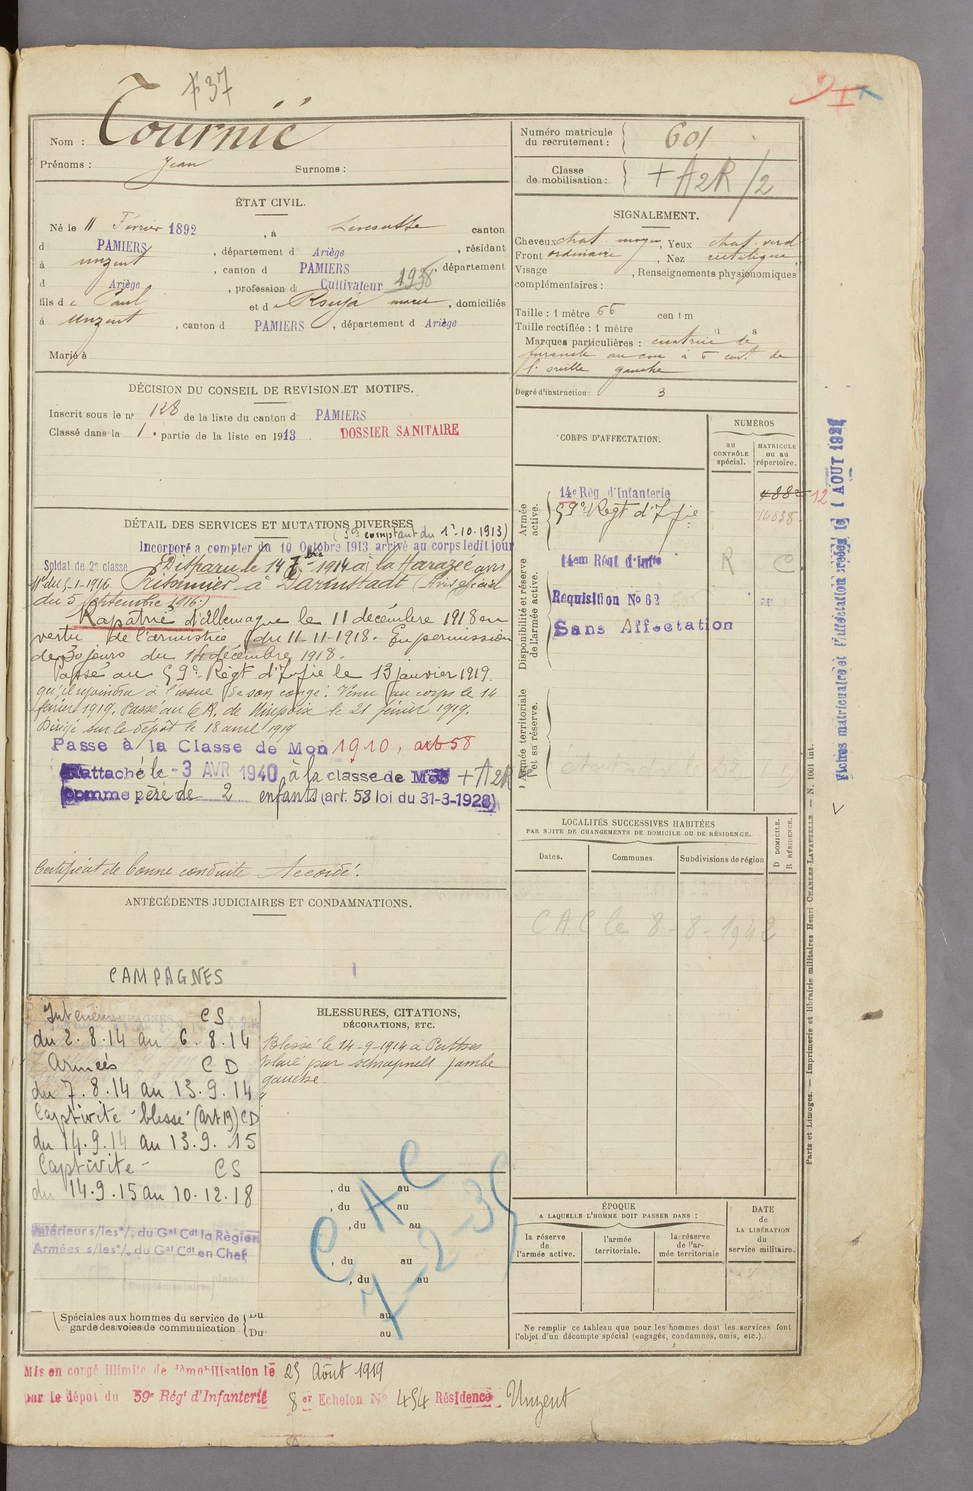 +37
Nom : Tournié
Prénoms : Jean Surnoms :
ÉTAT CIVIL.
Né le 11 Février 1892, à Lescousse canton
d PAMIERS, département d Ariège, résidant
à Unzent, canton d PAMIERS, département
d Ariège, profession d Cultivateur 1938
fils d e Paul et d e Rouja marie, domiciliés
à Unzent, canton d PAMIERS, département d Ariège
Marié à
DÉCISION DU CONSEIL DE REVISION ET MOTIFS.
Inscrit sous le nº 128 de la liste du canton d PAMIERS
Classé dans la 1 e partie de la liste en 1913. DOSSIER SANITAIRE
DÉTAIL DES SERVICES ET MUTATIONS DIVERSES
(Sce comptant du 1er.10.1913)
Incorporé a compter du 10 Octobre 1913 arrivé au corps ledit jour
Soldat de 2e classe. Disparu le 14 7bre 1914 à la Harazée avis
du 5-1-1916. Prisonnier à Darmstadt (Avis officiel
du 5 septembre 1916)
Rapatrié d'Allemagne le 11 décembre 1918 en
vertu de l'armistice du 11-11-1918. En permission
de 30 jours du 14 décembre 1918.
Passé au 59e Régt d'Infie le 13 janvier 1919.
qu'il rejoindra à l'issue de son congé. Venu au corps le 14
février 1919. Passé au C.R. de Mirepoix le 21 février 1919.
Dirigé sur le dépôt le 18 avril 1919
Passe à la Classe de Mon 1910, art 58
Rattaché le -3 AVR 1940 à la classe de Mob + A2R
comme père de 2 enfants (art. 58 loi du 31-3-1928)
Certificat de bonne conduite Accordé.
ANTÉCÉDENTS JUDICIAIRES ET CONDAMNATIONS.
CAMPAGNES
Intérieur CS
du 2.8.14 au 6.8.14
Armées CD
du 7.8.14 au 13.9.14
Captivité blessé (art 19) CD
du 14.9.14 au 13.9.15
Captivité - CS
du 14.9.15 au 10.12.18
Intérieur s/les º/. du Gal Cdt la Région
Armées s/les º/. du Gal Cdt en Chef
Spéciales aux hommes du service de garde des voies de communication.
Du au
Du au
BLESSURES, CITATIONS,
DÉCORATIONS, ETC.
Blessé le 14-9-1914 à
plaie par schrapnell jambe
gauche
, du au
, du au
, du au
, du au
, du au
CAC
7-2-35
Numéro matricule du recrutement : 601
Classe de mobilisation : + A2R/2
SIGNALEMENT.
Cheveux chat. moyen, Yeux chat. verd
Front ordinaire, Nez rectiligne
Visage , Renseignements physionomiques
complémentaires :
Taille : 1 mètre 66 cent m
Taille rectifiée : 1 mètre
Marques particulières : cicatrice de
furoncle au cou à 5 cent. de
l'oreille gauche
Degré d'instruction : 3
CORPS D'AFFECTATION.
NUMÉROS
au CONTRÔLE spécial.
MATRICULE ou au répertoire.
Armée active.
14e Rég d'Infanterie
59e Régt d'Infie
Disponibilité et réserve de l'armée active.
14em Régt d'Infie R C
Requisition No 62
Sans Affectation
Armée territoriale et sa réserve.
LOCALITÉS SUCCESSIVES HABITÉES
PAR SUITE DE CHANGEMENTS DE DOMICILE OU DE RÉSIDENCE.
Dates. Communes Subdivisions de région
D DOMICILE. R RÉSIDENCE.
CAC le 8-8-1942
ÉPOQUE
A LAQUELLE L'HOMME DOIT PASSER DANS :
la réserve de l'armée active.
l'armée territoriale.
la réserve de l'armée territoriale
DATE de LA LIBÉRATION du service militaire.
Ne remplir ce tableau que pour les hommes dont les services font
l'objet d'un décompte spécial (engagés, condamnés, omis, etc.).
Paris et Limoges. — Imprimerie et librairie militaires Henri CHARLES-LAVAUZELLE — N. 1001 int.
Fiches matriculaire et d'affectation créées le 1 AOUT 192
Mis en congé illimité de démobilisation le 25 Août 1919
par le dépôt du 59e Régt d'Infanterie 8 er Echelon No 454 Résidence Unzent